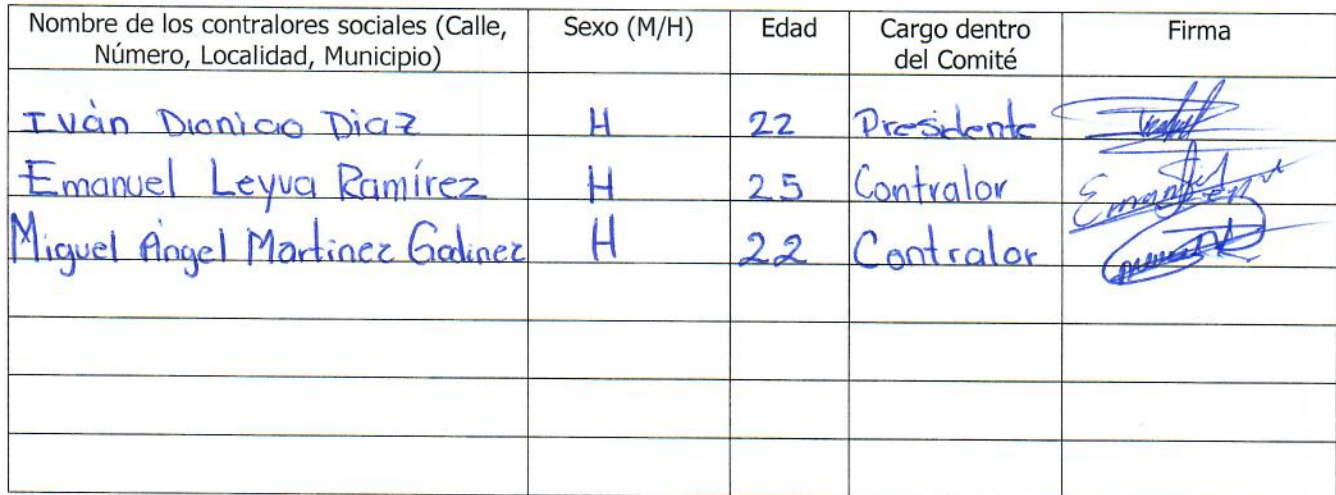 Nombre de los contralores sociales (Calle, Número, Localidad, Municipio) Sexo (M/H) Edad Cargo dentro del Comité Firma
Iván Dionicio Diaz H 22 Presidente
Emanuel Leyva Ramírez H 25 Contralor
Miguel Angel Martinez Godinez H 22 Contralor